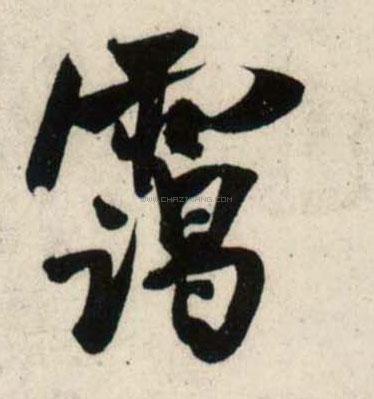 靄
WWW.CHAZIWANG.COM